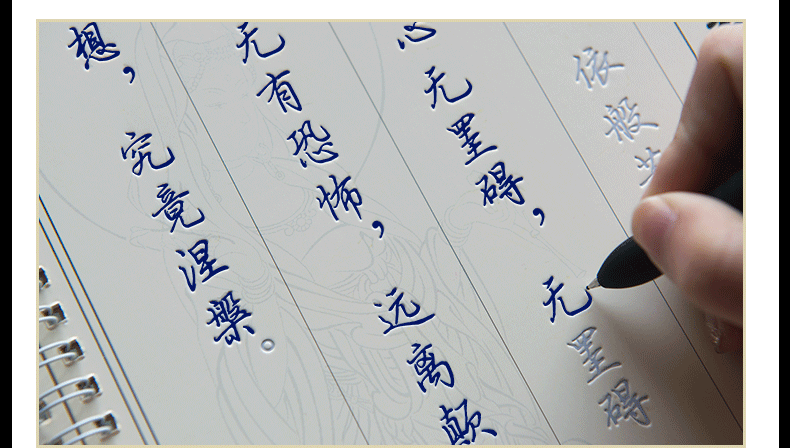 依般若
心无罣碍，无罣碍
无有恐怖，远离颠
想，究竟涅槃。